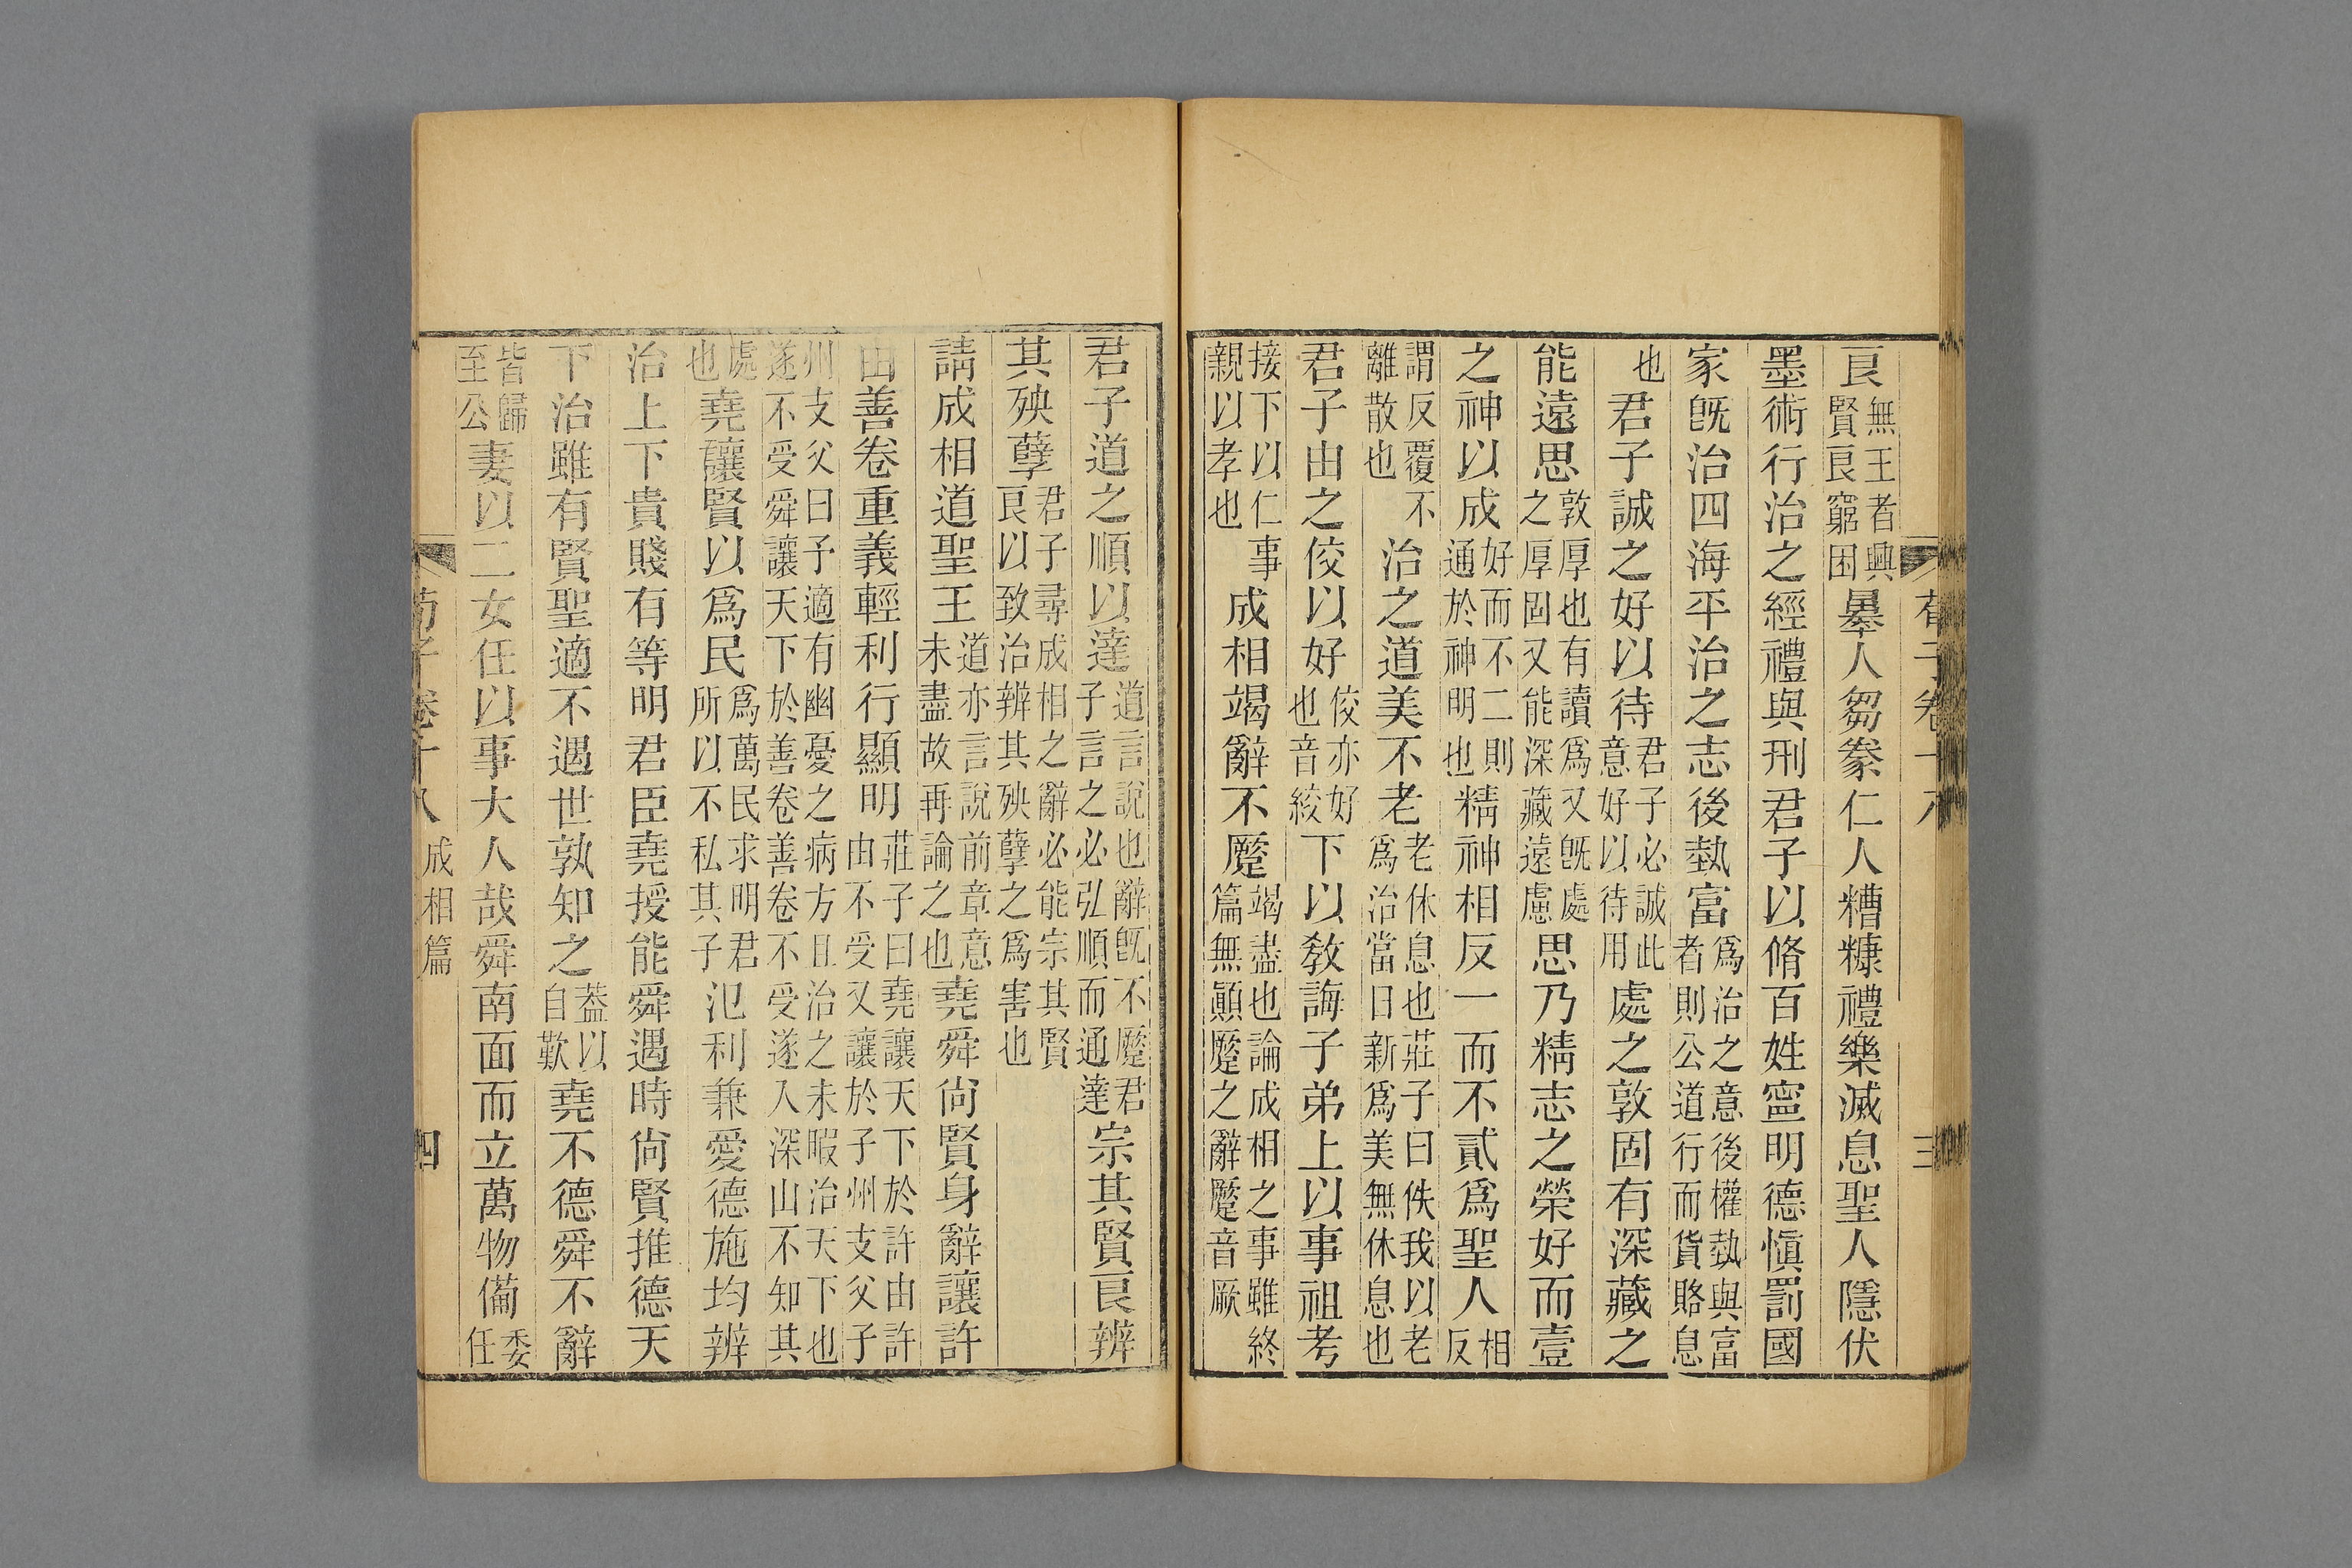 荀子卷十八 三
良無王者興賢良窮困暴人芻豢仁人糟糠禮樂滅息聖人隱伏
墨術行治之經禮與刑君子以脩百姓寧明德愼罰國
家旣治四海平治之志後埶富爲治之意後權埶與富者則公道行而貨賂息
也君子誠之好以待君子必誠此意好以待用處之敦固有深藏之
能遠思敦厚也有讀爲又旣處之厚固又能深藏遠慮思乃精志之榮好而壹
之神以成好而不二則通於神明也精神相反一而不貳爲聖人相反
謂反覆不離散也治之道美不老老休息也莊子曰佚我以老爲治當日新爲美無休息也
君子由之佼以好佼亦好也音絞下以敎誨子弟上以事祖考
接下以仁事親以孝也成相竭辭不蹷竭盡也論成相之事雖終篇無顚蹷之辭蹷音厥
君子道之順以達道言說也辭旣不蹷君子言之必弘順而通達宗其賢良辨
其殃孽君子尋成相之辭必能宗其賢良以致治辨其殃孽之爲害也
請成相道聖王道亦言說前章意未盡故再論之也堯舜尙賢身辭讓許
由善卷重義輕利行顯明莊子曰堯讓天下於許由許由不受又讓於子州支父子
州支父曰予適有幽憂之病方且治之未暇治天下也遂不受舜讓天下於善卷善卷不受遂入深山不知其
處也堯讓賢以爲民爲萬民求明君所以不私其子氾利兼愛德施均辨
治上下貴賤有等明君臣堯授能舜遇時尙賢推德天
下治雖有賢聖適不遇世孰知之蓋以自歎堯不德舜不辭
妻以二女任以事大人哉舜南面而立萬物備委任
皆歸至公
荀子卷十八 成相篇 四